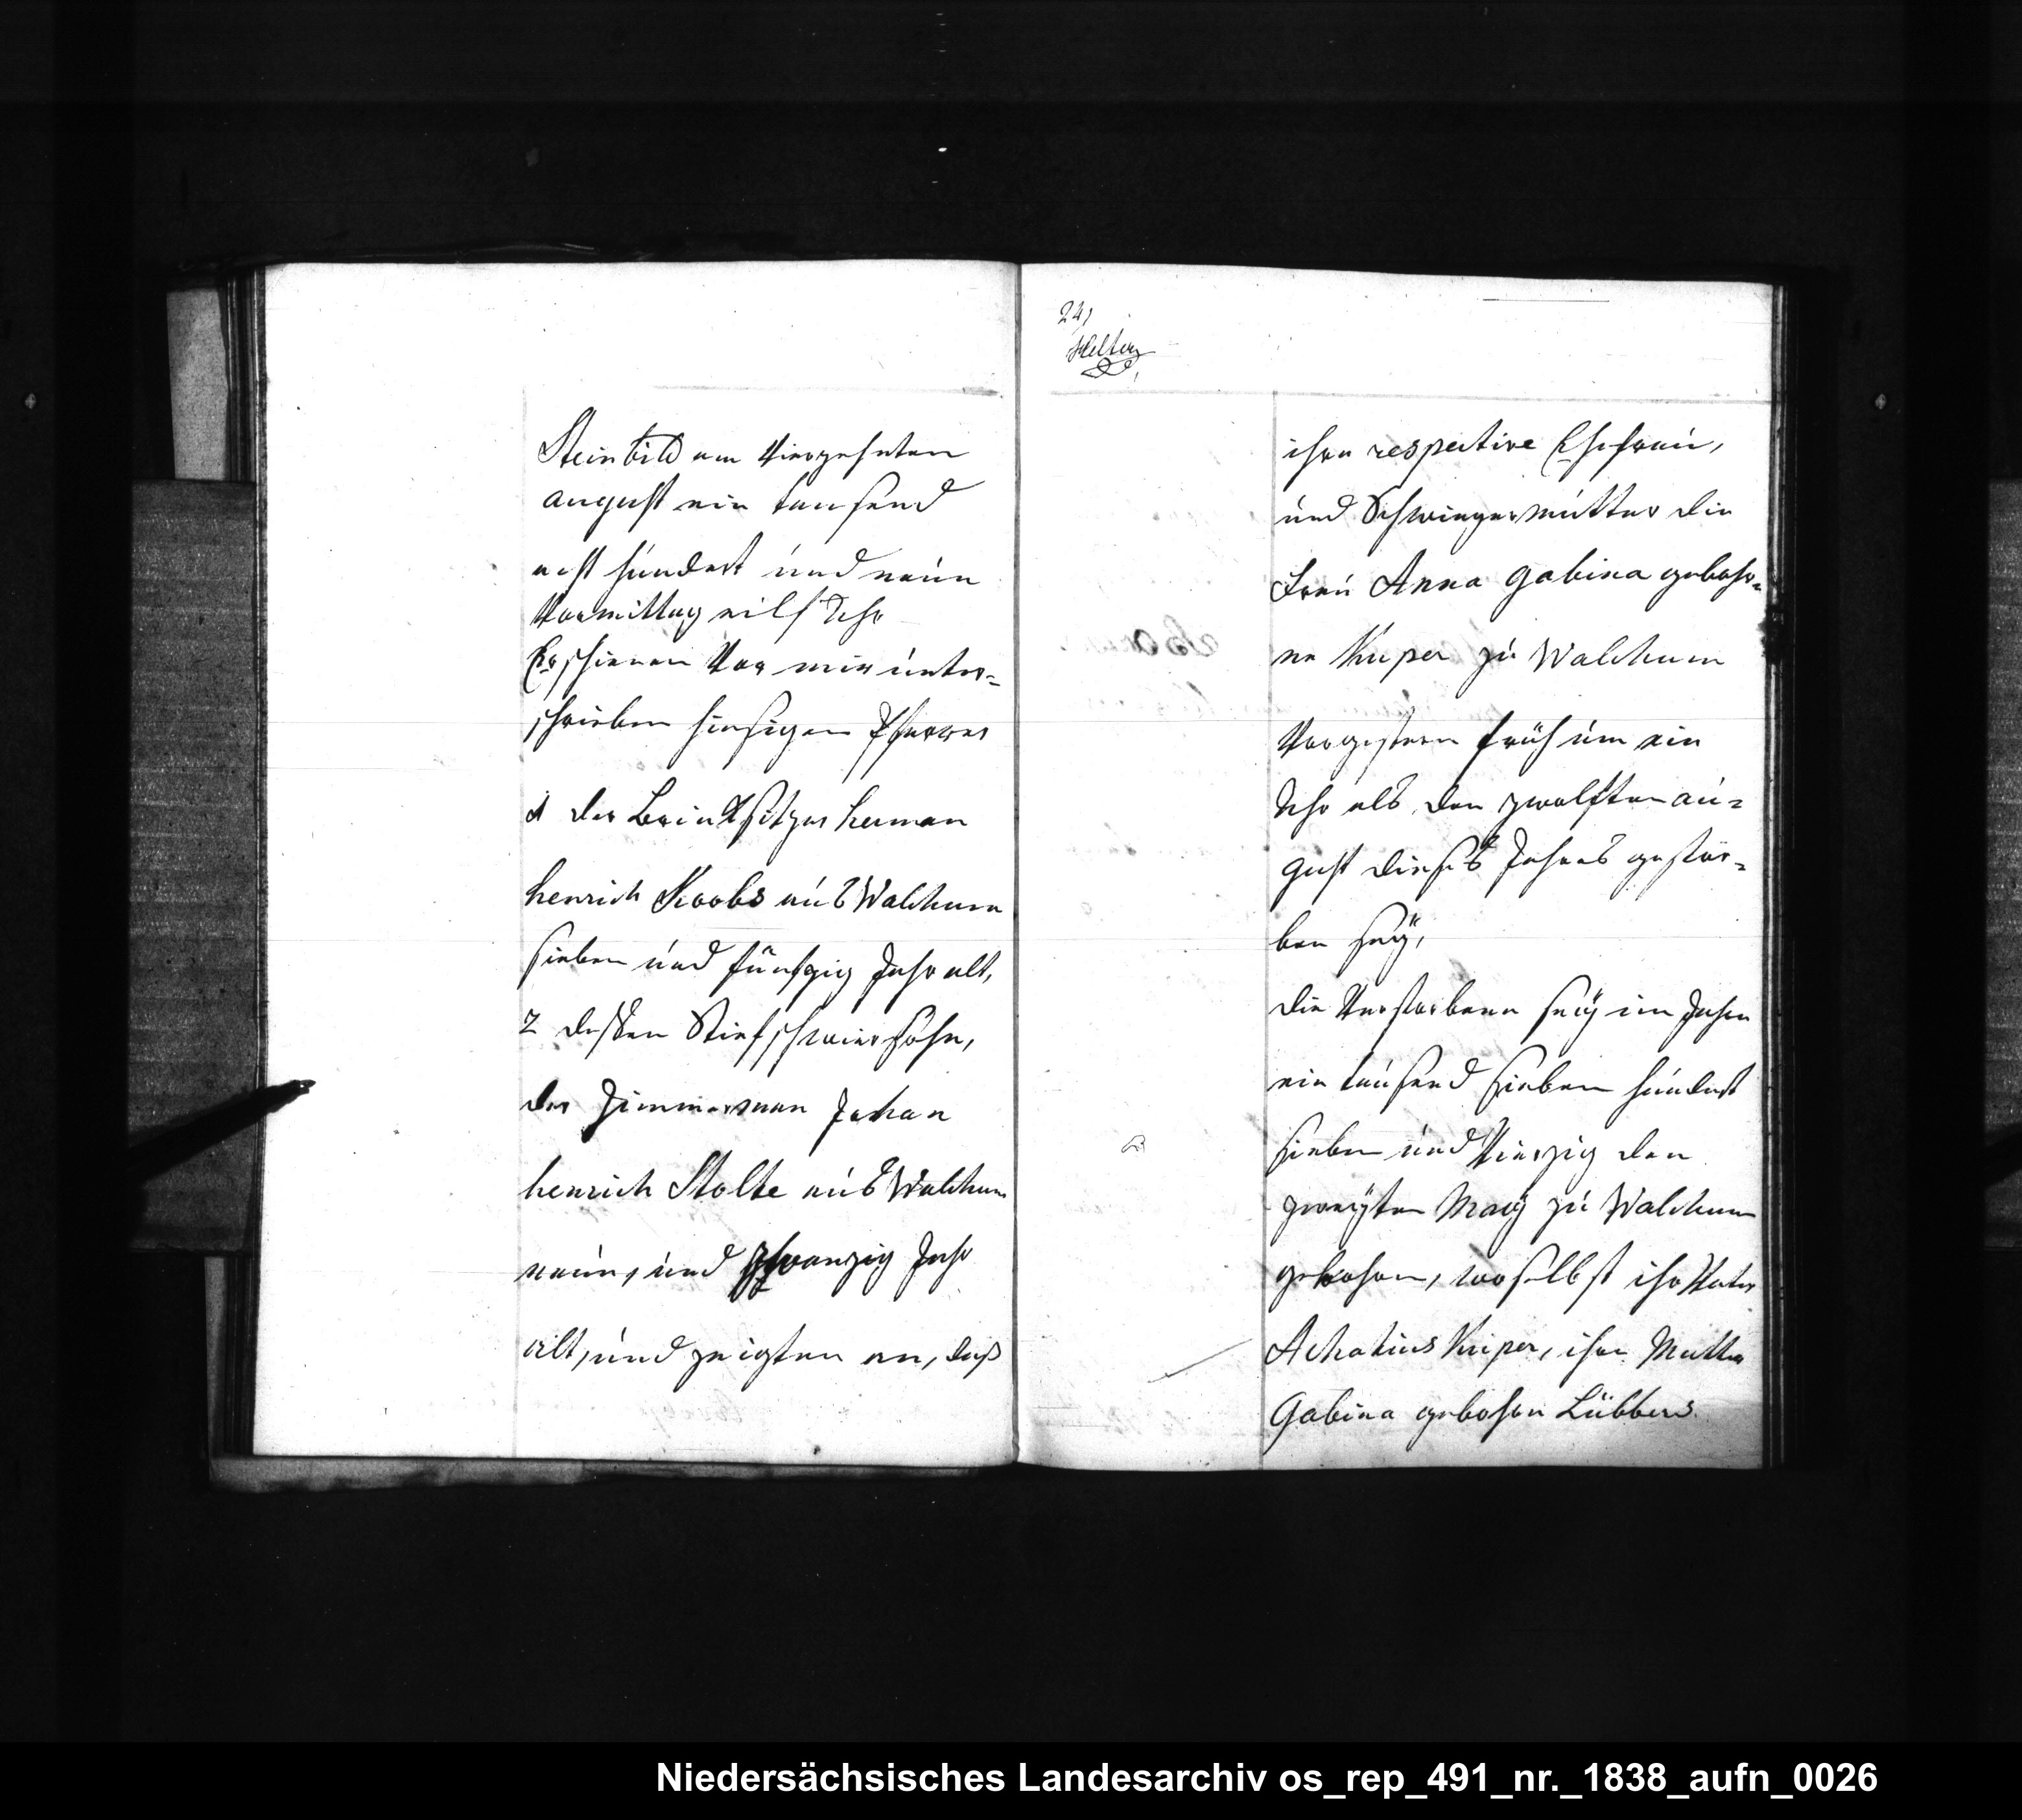 Steinbild am Vierzehnten
august ein tausend
acht hundert und neun
Vormittag eilf Uhr
Erschienen Vor mir unter=
schrieben hiesigen Pfarrer
1 der Brinksitzer herman
henrich Koobs aus Walchum
sieben und fünfzig Jahr alt,
2 dessen Stiefschwiersohn,
der Zimmerman Johan
henrich Stolte aus Walchum
neun, und zwanzig Jahr
alt, und zeigten an, daß
24,
ihre respective Ehefrau,
und Schwiegermutter die
Frau Anna Gabina gebohr=
ne Kuper zu Walchum
Vorgestern früh um ein
Uhr als den zwolften au=
gust dieses Jahres gestor=
ben seÿ,
die Verstorbene seÿ im Jahre
ein tausend sieben hundert
sieben und Vierzig den
zweÿten Maÿ zu Walchum
gebohren, woselbst ihr Vater
Achatius Kuper, ihre Mutter
Gabina gebohren Lübbers.
Niedersächsisches Landesarchiv os_rep_491_nr._1838_aufn_0026